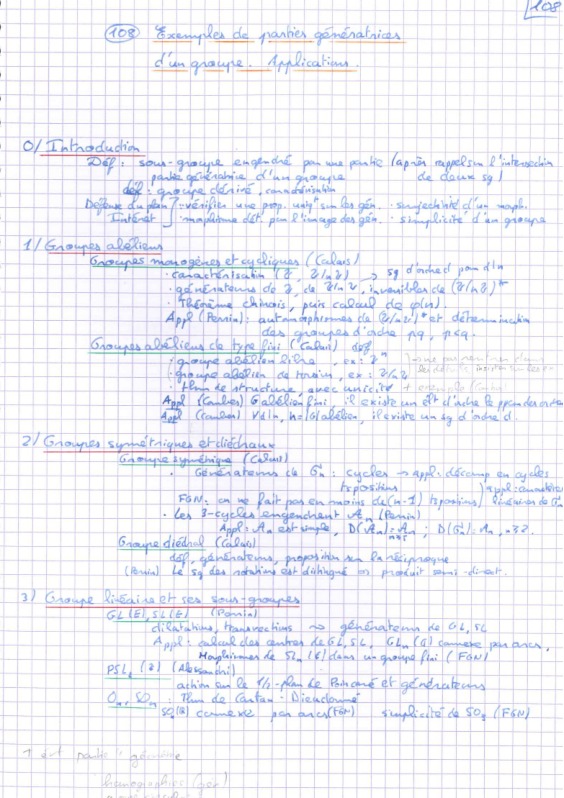 108
108 Exemples de parties génératrices
d'un groupe. Applications.
0/ Introduction
Déf: sous-groupe engendré par une partie (après rappel sur l'intersection
partie génératrice d'un groupe de deux sg)
déf: groupe dérivé, caractérisation
Défense du plan - vérifier une prop. uniqt sur les gén. - surjectivité d'un morph.
Intérêt - morphisme dét. par l'image des gén. - simplicité d'un groupe
1/ Groupes abéliens
Groupes monogènes et cycliques (Calais)
- caractérisation (Z, Z/nZ) → sg d'ordre d pour d|n
- générateurs de Z, de Z/nZ, inversibles de (Z/nZ)*
- Théorème chinois, puis calcul de φ(n).
Appl (Perrin): automorphismes de (Z/nZ)* et détermination
des groupes d'ordre pq, p<q.
Groupes abéliens de type fini (Calais) déf
- groupe abélien libre, ex: Z^n
- groupe abélien de torsion, ex: Z/nZ
- thm de structure, avec unicité + exemple
Appl (Combes) G abélien fini, il existe un élt d'ordre le ppcm des ordres
Appl (Combes) ∀d|n, n=|G| abélien, il existe un sg d'ordre d.
2/ Groupes symétriques et diédraux
Groupe symétrique (Calais)
- Générateurs de Gn: cycles → appl. décomp en cycles
tspositions appl: caractères
FGN: on ne fait pas en moins de (n-1) tspositions linéaires de Gn
- Les 3-cycles engendrent An (Perrin)
Appl: An est simple, D(An)=An n≥5; D(Gn)=An, n≥2.
Groupe diédral (Calais)
déf, générateurs, proposition sur la réciproque
(Perrin) Le sg des rotations est distingué ⇒ produit semi-direct.
3) Groupe linéaire et ses sous-groupes
GL(E), SL(E) (Perrin)
dilatations, transvections ⇝ générateurs de GL, SL
Appl: calcul des centres de GL, SL, GLn(C) connexe par arcs,
Morphismes de SLn(C) dans un groupe fini (FGN)
PSL2(Z) (Alessandri)
action sur le 1/2-plan de Poincaré et générateurs
On, SOn Thm de Cartan-Dieudonné
SOn(R) connexe par arcs (FGN) simplicité de SO3 (FGN)
homographies